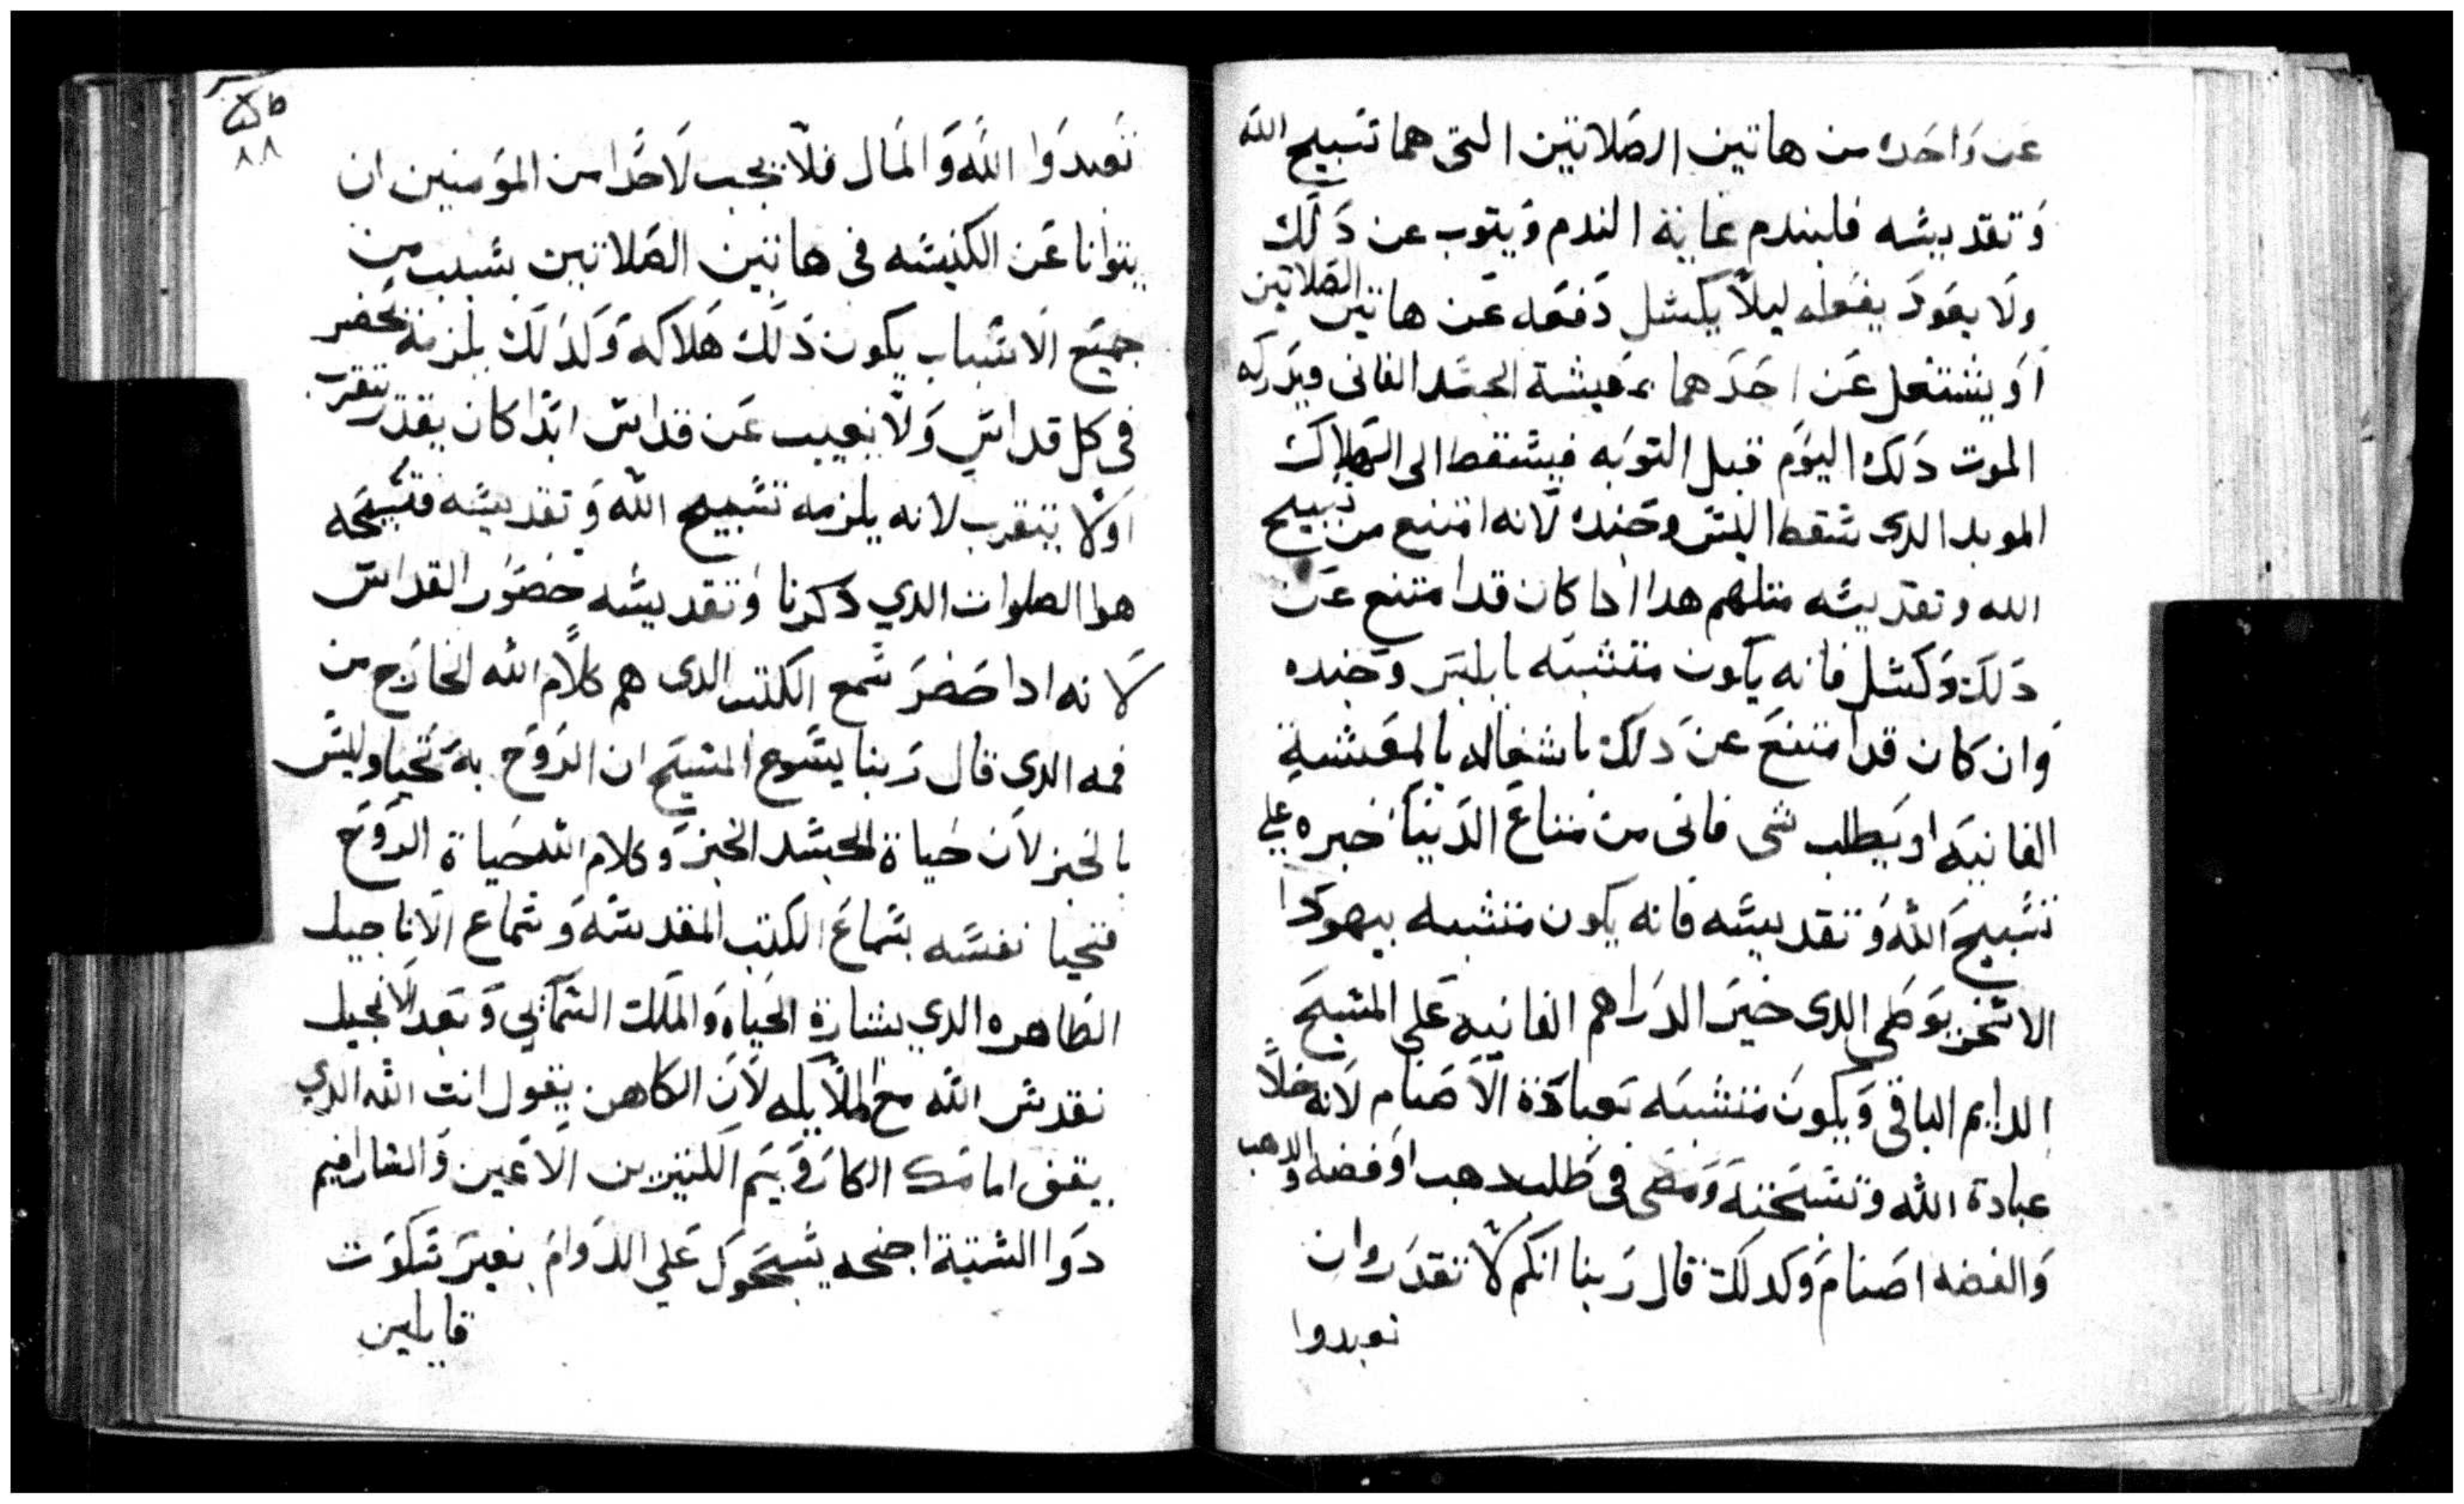 عن واحده من هاتين الصلاتين التى هما تسبيح الله
وتقديسه فليندم غاية الندم ويتوب عن دلك
ولا يعود يفعله ليلا يكسل دفعه عن هاتين الصلاتين
او يشتغل عن احدهما بمعيشة الجسد الفانى ويدركه
الموت دلك اليوم قبل التوبه فيسقط الى الهلاك
الموبد الدى سقط ابليس وجنده لانه امتنع من تسبيح
الله وتقديسه متلهم هدا ادا كان قد امتنع عن
دلك وكسل فانه يكون متشبه بابليس وجنده
وان كان قد امتنع عن دلك باشغاله بالمعيشة
الفانيه او يطلب شى فانى من متاع الدنيا خيره على
تسبيح الله وتقديسه فانه يكون متشبه بيهودا
الاسخريوطى الدى خير الدراهم الفانيه على المسيح
الدايم الباقى ويكون متشبه بعبادة الاصنام لانه خلا
عبادة الله وتسبحته ومضى فى طلب دهب او فضه والدهب
والفضه اصنام وكدلك قال ربنا انكم لا تقدروا ان
تعبدوا
طس
٨٨
تعبدوا الله والمال فلا يجب لاحدا من المومنين ان
يتوانا عن الكنيسه فى هاتين الصلاتين بسبب من
جميع الاسباب يكون دلك هلاكه وكدلك يلزمه يحضر
فى كل قداس ولا يغيب عن قداس ابدا كان يقدر يتقرب
اولا يتقرب لانه يلزمه تسبيح الله وتقديسه فتسبيحه
هوا الصلوات الدي دكرنا وتقديسه حضور القداس
لانه ادا حضر سمع الكتب الدى هم كلام الله الخارج من
فمه الدى قال ربنا يسوع المسيح ان الروح به تحيا وليس
بالخبز لان حياة الجسد الخبز وكلام الله حياة الروح
فتحيا نفسه بسماع الكتب المقدسه وسماع الاناجيل
الطاهره الدي بشارة الحياه والملك السمآيي وبعد الانجيل
نقدس الله مع الملايكه لان الكاهن يقول انت الله الدي
يقف امامك الكاروبيم الكتيرين الاعين والسارافيم
دوا الستة اجنحه يسبحوك علي الدوام بغير سكوت
قايلين